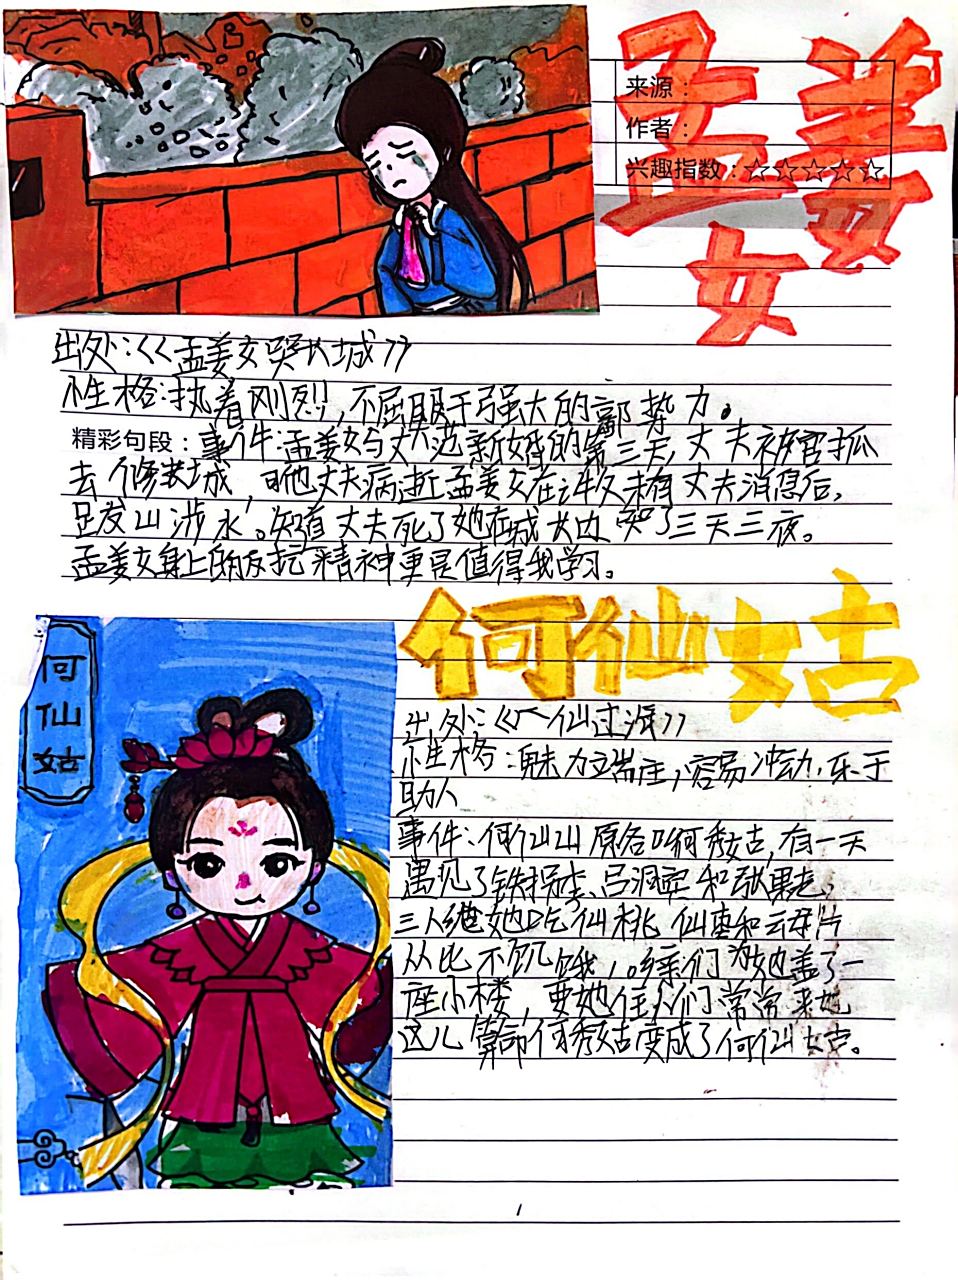 孟姜女
来源：
作者：
兴趣指数：☆☆☆☆☆
出处：《孟姜女哭长城》
性格：执着刚烈，不屈服于强大的部势力。
精彩句段：事件：孟姜女与丈夫范新婚的第三天，丈夫被官抓
去修长城，丈夫病逝，孟姜女在许久未有丈夫消息后，
足发山涉水。知道丈夫死了她在城边哭了三天三夜。
孟姜女身上的反抗精神更是值得我学习。
何仙姑
何仙姑
出处：《八仙过海》
性格：魅力端庄，容易冲动，乐于
助人
事件：何仙山原名叫何秀古，有一天
遇见了铁拐李、吕洞宾和张果老，
三人给她吃仙桃仙枣和云母片
从此不饥饿，乡亲们为她盖了一
座小楼，要她住人们常常来她
这儿算命何秀姑变成了何仙姑。
1